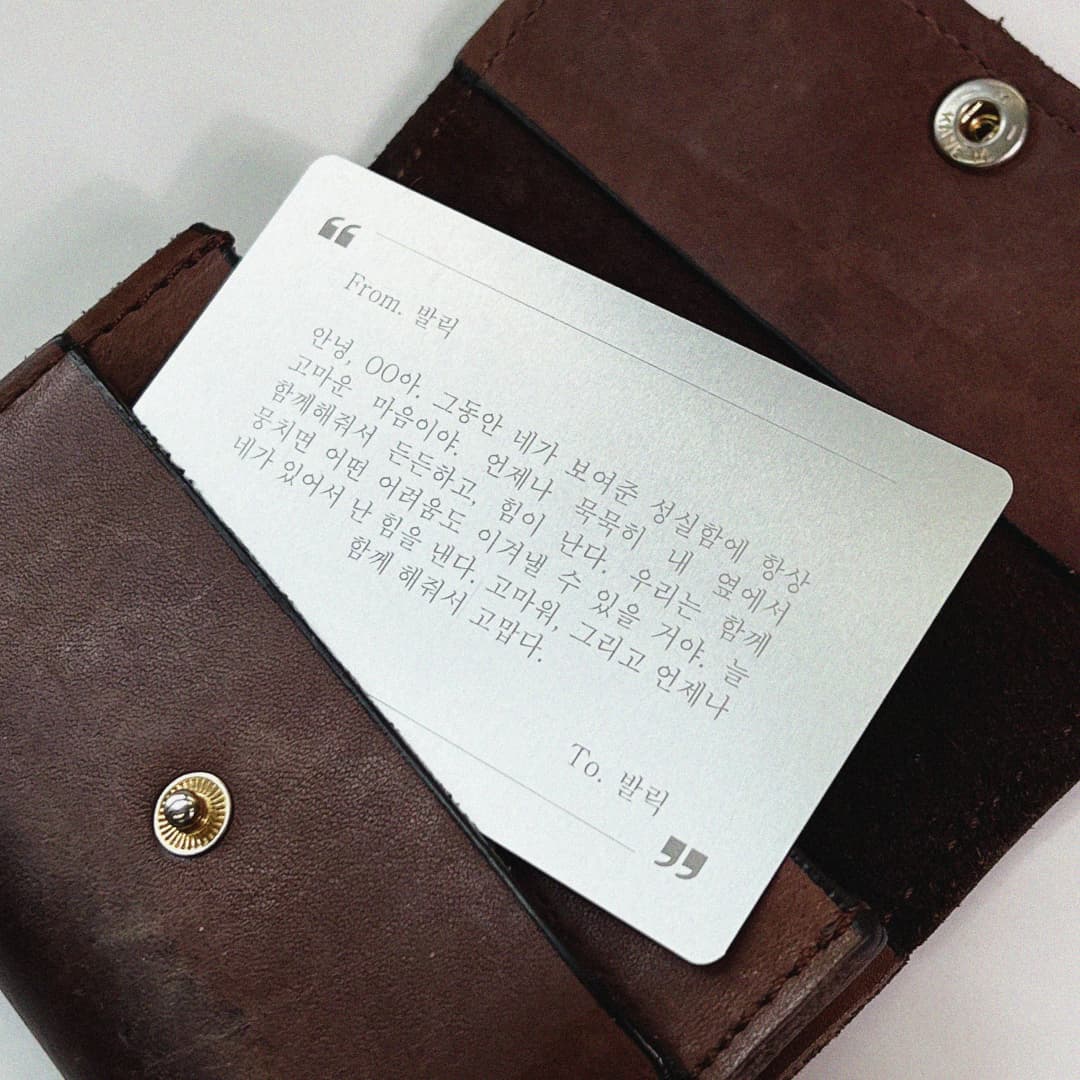 “
From. 발릭
안녕, OO아. 그동안 네가 보여준 성실함에 항상
고마운 마음이야. 언제나 묵묵히 내 옆에서
함께해줘서 든든하고, 힘이 난다. 우리는 함께
뭉치면 어떤 어려움도 이겨낼 수 있을 거야. 늘
네가 있어서 난 힘을 낸다. 고마워, 그리고 언제나
함께 해줘서 고맙다.
To. 발릭
”